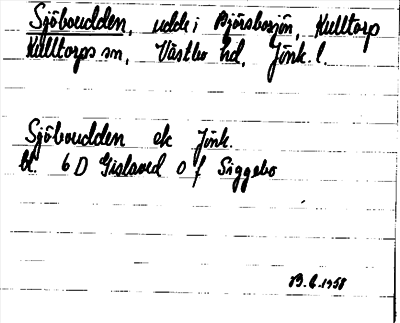 Sjöboudden, udde i Bjärsbosjön, Kulltorp
Kulltorps sn, Västbo hd, Jönk. l.
Sjöboudden ek Jönk.
bl. 6 D Gislaved O f Siggebo
13.6.1958